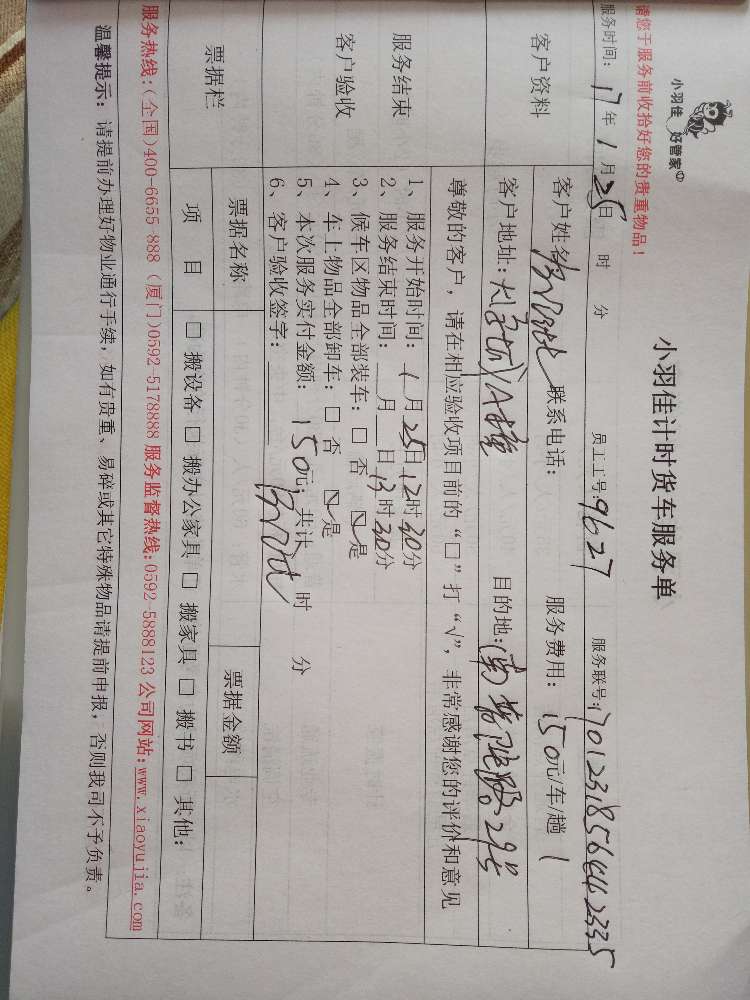 请您于服务前收拾好您的贵重物品！
小羽佳 好管家
小羽佳计时货车服务单
服务时间：17年1月25日 时 分 员工工号：9627 服务联号：
客户资料
客户姓名 联系电话： 服务费用：150元/车/趟
客户地址： 目的地：
服务结束
客户验收
尊敬的客户，请在相应验收项目前的“□”打“√”，非常感谢您的评价和意见
1、服务开始时间：1月25日12时30分
2、服务结束时间：__月__日13时30分
3、候车区物品全部装车：□ 否 ☑ 是
4、车上物品全部卸车：□ 否 ☑ 是
5、本次服务实付金额：150元；共计 时 分
6、客户验收签字：
票据栏
票据名称 票据金额
项目 □ 搬设备 □ 搬办公家具 □ 搬家具 □ 搬书 □ 其他：
服务热线：（全国）400-6655-888（厦门）0592-5178888 服务监督热线：0592-5888123 公司网站：www.xiaoyujia.com
温馨提示：请提前办理好物业通行手续，如有贵重、易碎或其它特殊物品请提前申报，否则我司不予负责。